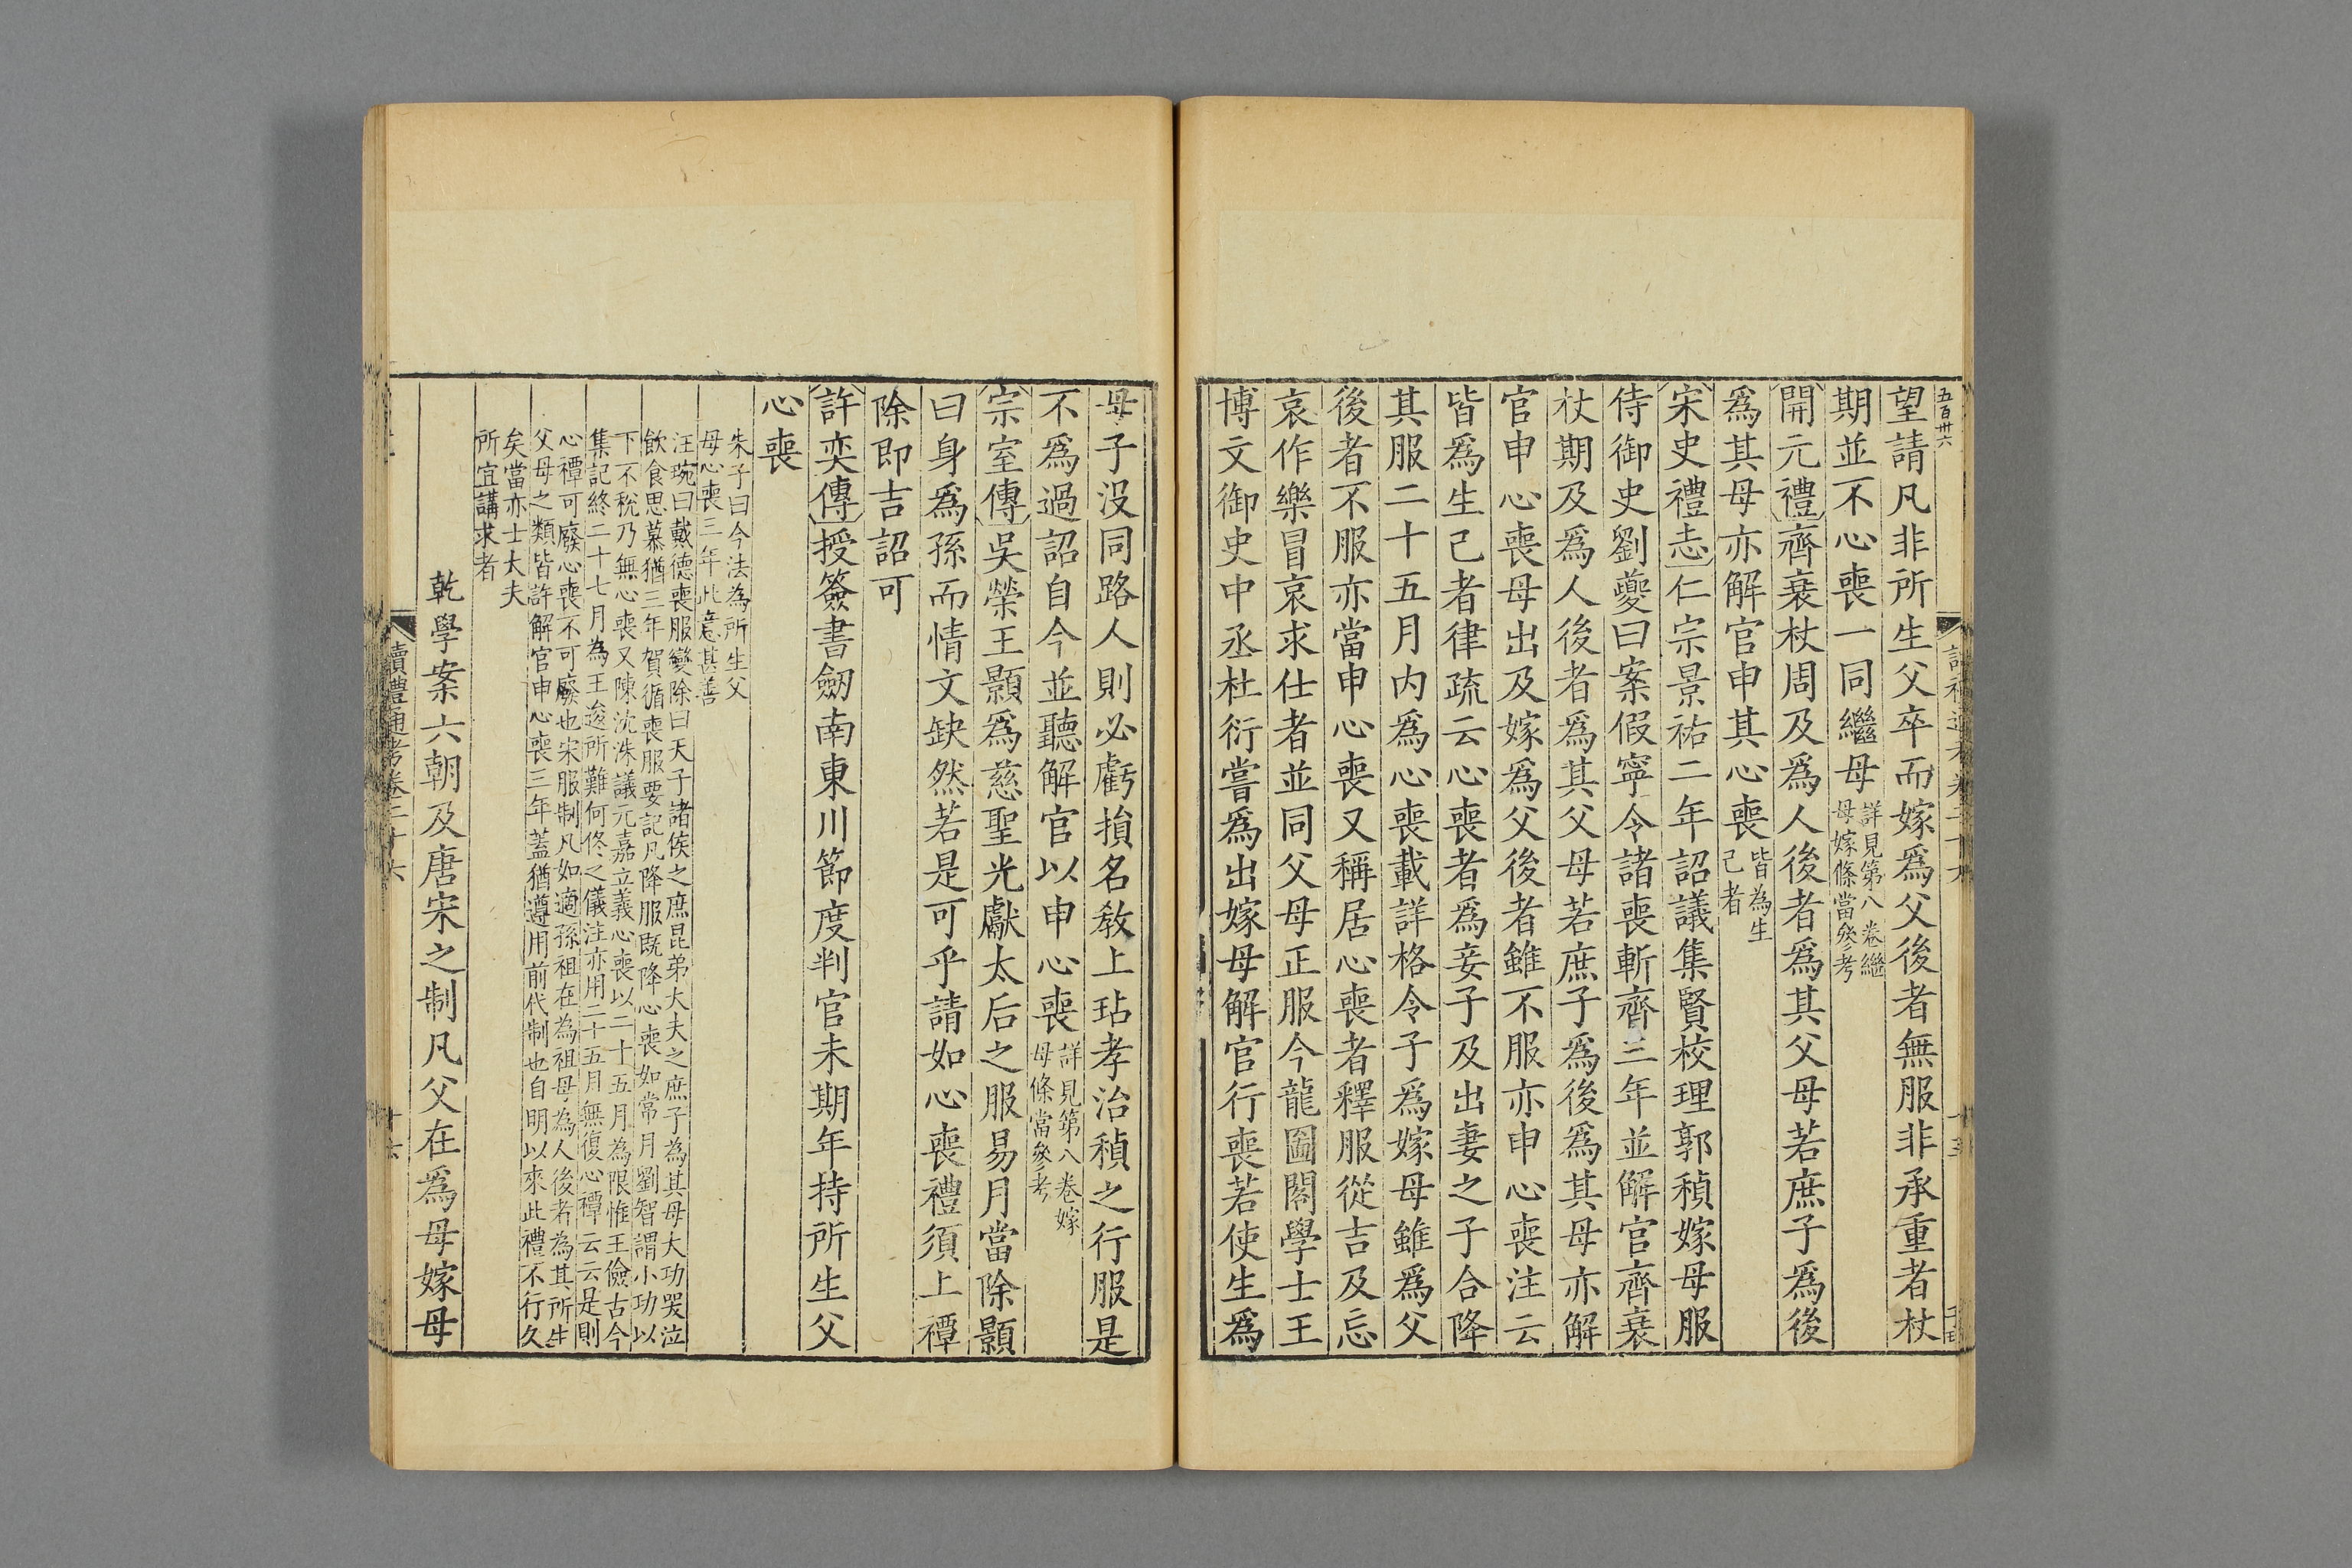 五百卅六
望請凡非所生父卒而嫁爲父後者無服非承重者杖
期並不心喪一同繼母詳見第八卷繼
母嫁條當叅考
開元禮齊衰杖周及爲人後者爲其父母若庶子爲後
爲其母亦解官申其心喪皆為生
己者
宋史禮志仁宗景祐二年詔議集賢校理郭稹嫁母服
侍御史劉夔曰案假寧令諸喪斬齊三年並解官齊衰
杖期及爲人後者爲其父母若庶子爲後爲其母亦解
官申心喪母出及嫁爲父後者雖不服亦申心喪注云
皆爲生己者律疏云心喪者爲妾子及出妻之子合降
其服二十五月内爲心喪載詳格令子爲嫁母雖爲父
後者不服亦當申心喪又稱居心喪者釋服從吉及忘
哀作樂冒哀求仕者並同父母正服今龍圖閣學士王
博文御史中丞杜衍嘗爲出嫁母解官行喪若使生爲
母子没同路人則必虧損名教上玷孝治稹之行服是
不爲過詔自今並聽解官以申心喪詳見第八卷嫁
母條當叅考
宗室傳吳榮王顥爲慈聖光獻太后之服易月當除顥
曰身爲孫而情文缺然若是可乎請如心喪禮須上禫
除即吉詔可
許奕傳授簽書劒南東川節度判官未期年持所生父
心喪
朱子曰今法為所生父
母心喪三年此意甚善
汪琬曰戴德喪服變除曰天子諸侯之庶昆弟大夫之庶子為其母大功哭泣
飲食思慕猶三年賀循喪服要記凡降服既降心喪如常月劉智謂小功以
下不稅乃無心喪又陳沈洙議元嘉立義心喪以二十五月為限惟王儉古今
集記終二十七月為王逡所難何佟之儀注亦用二十五月無復心禫云云是則
心禫可廢心喪不可廢也宋服制凡如適孫祖在為祖母為人後者為其所生
父母之類皆許解官申心喪三年蓋猶遵用前代制也自明以來此禮不行久
矣當亦士大夫
所宜講求者
乾學案六朝及唐宋之制凡父在爲母嫁母
讀禮通考卷二十六